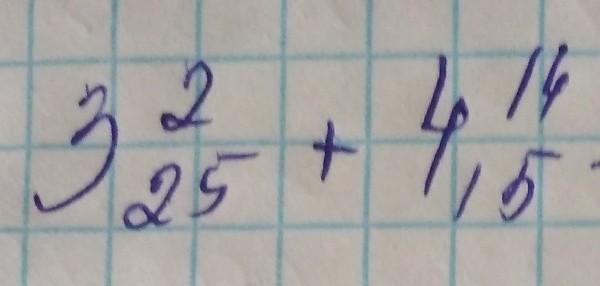 3 2/25 + 4 14/15